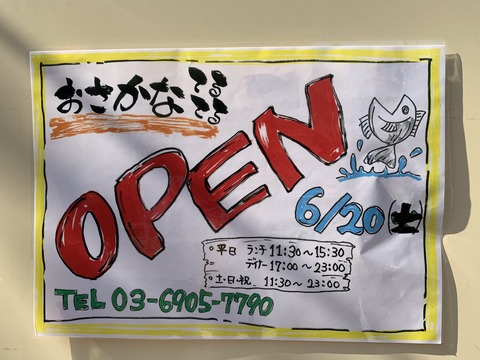 おさかな てるてる
OPEN
6/20(土)
○平日 ランチ 11:30～15:30
ディナー 17:00～23:00
○土・日・祝 11:30～23:00
TEL 03-6905-7790